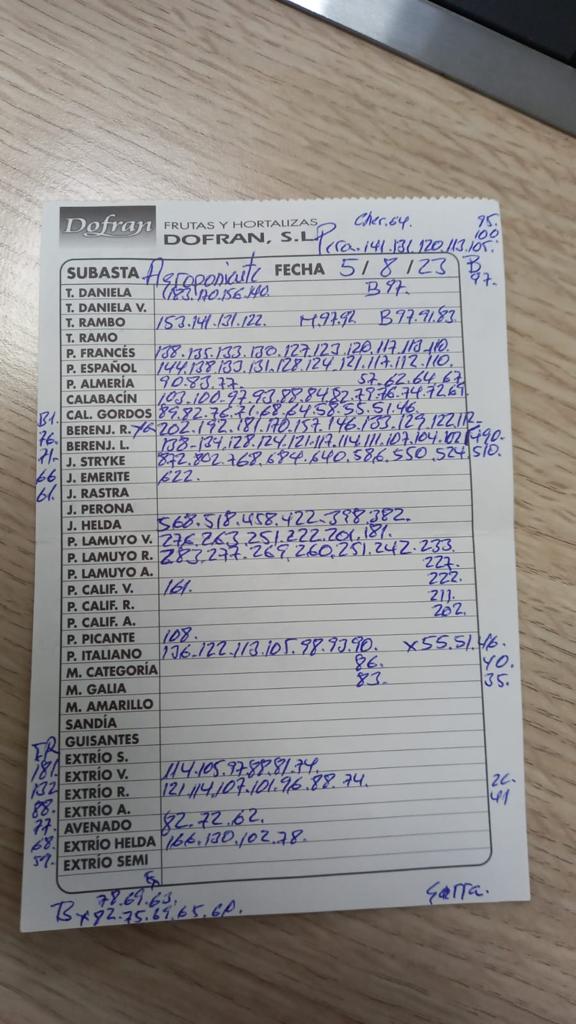 Dofran FRUTAS Y HORTALIZAS Cher.64. 95.
DOFRAN, S.L. Pera.141.131.120.113.105. 100
SUBASTA Agroponiente FECHA 5/8/23 B
T. DANIELA 183.170.156.140. B 97. 97.
T. DANIELA V.
T. RAMBO 153.141.131.122. M.97.92 B 97.91.83
T. RAMO
P. FRANCÉS 138.135.133.130.127.123.120.117.113.110.
P. ESPAÑOL 144.138.133.131.128.124.121.117.112.110.
P. ALMERÍA 90.83.77. 57.62.64.67
CALABACÍN 103.100.97.93.88.84.82.79.76.74.72.69
B1. CAL. GORDOS 89.82.76.71.68.64.58.55.51.46.
76. BERENJ. R. 202.192.181.170.157.146.133.129.122.112.
71. BERENJ. L. 138-134.128.124.121.117.114.111.107.104.102 490.
J. STRYKE 872.802.768.684.640.586.550.524 510.
66 J. EMERITE 622.
61. J. RASTRA
J. PERONA
J. HELDA 568.518.458.422.398.382.
P. LAMUYO V. 276.263.251.222.201.181.
P. LAMUYO R. 283.277.269.260.251.242.233.
P. LAMUYO A. 227.
P. CALIF. V. 161. 222.
P. CALIF. R. 211.
P. CALIF. A. 202.
P. PICANTE 108.
P. ITALIANO 136.122.113.105.98.93.90. x55.51.46.
M. CATEGORÍA 86. 40.
M. GALIA 83. 35.
M. AMARILLO
SANDÍA
GUISANTES
EXTRÍO S.
181. EXTRÍO V. 114.105.97.88.81.74.
132 EXTRÍO R. 121.114.107.101.96.88.74. 26.
88. EXTRÍO A. 41
77. AVENADO 82.72.62.
68. EXTRÍO HELDA 166.130.102.78.
57. EXTRÍO SEMI
78.69.63.
B x82.75.69.65.60.